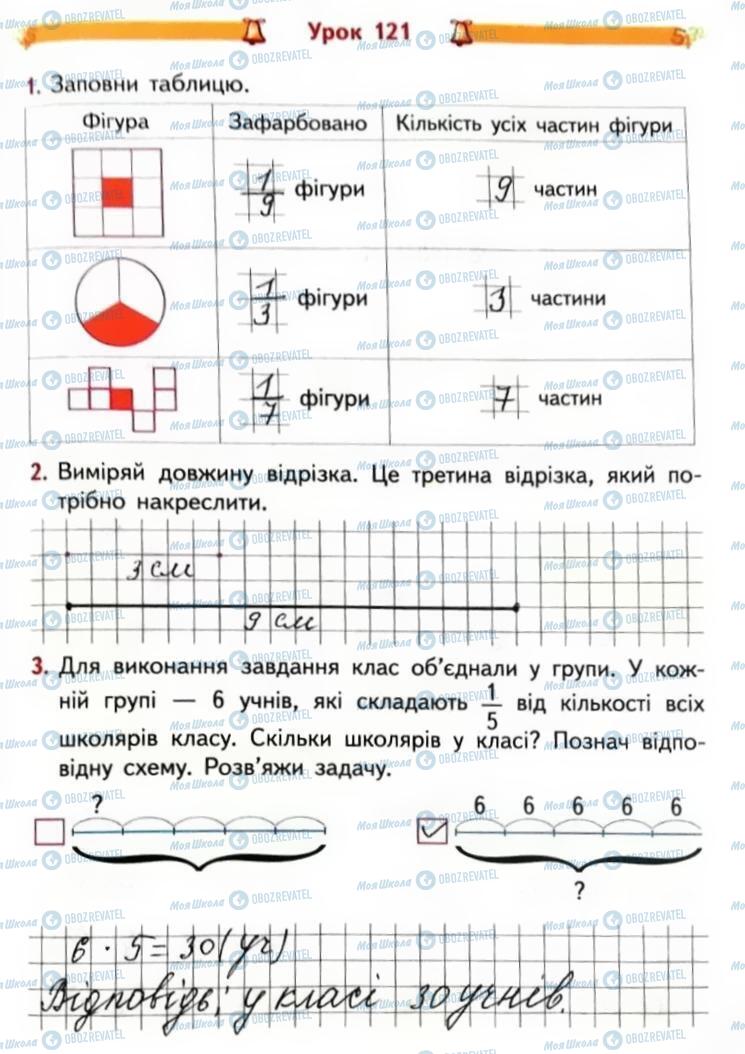 Урок 121
1. Заповни таблицю.
Фігура Зафарбовано Кількість усіх частин фігури
1/9 фігури 9 частин
1/3 фігури 3 частини
1/7 фігури 7 частин
2. Виміряй довжину відрізка. Це третина відрізка, який по-
трібно накреслити.
3 см
9 см
3. Для виконання завдання клас об’єднали у групи. У кож-
ній групі — 6 учнів, які складають 1/5 від кількості всіх
школярів класу. Скільки школярів у класі? Познач відпо-
відну схему. Розв’яжи задачу.
? 6 6 6 6 6
?
6 · 5 = 30 (уч)
Відповідь: у класі 30 учнів.